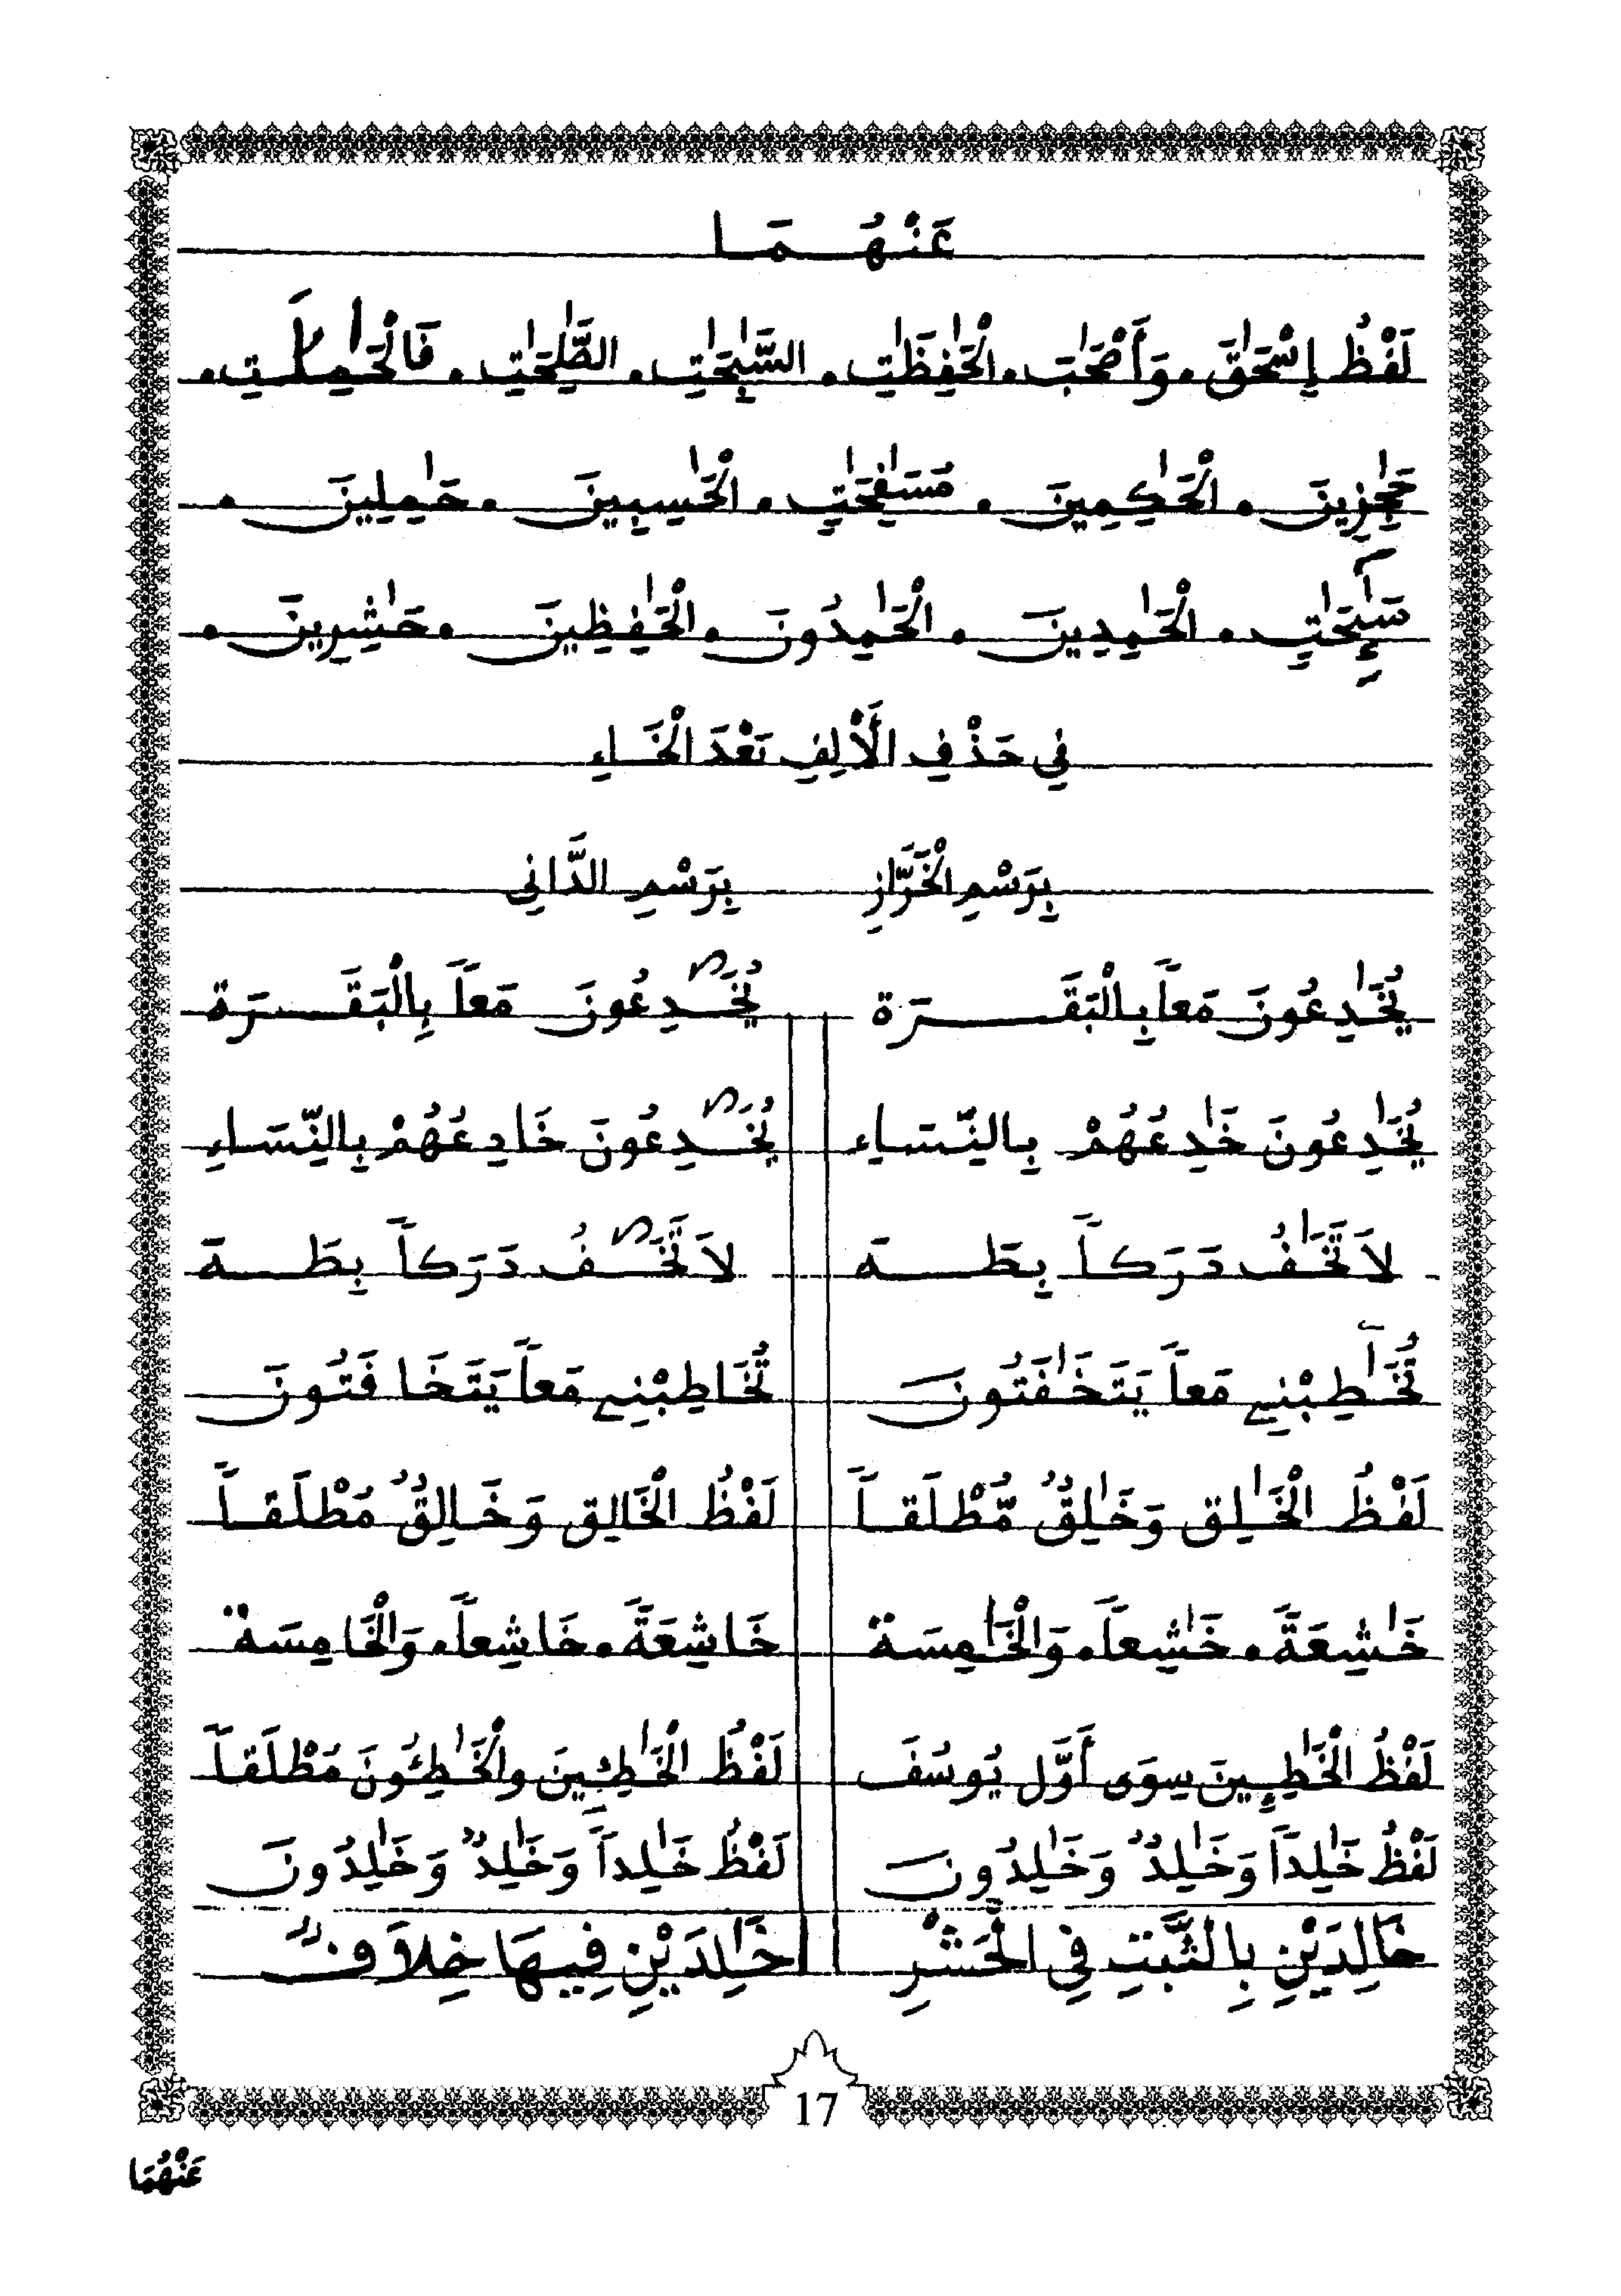 عَنْهُمَا
لَفْظُ إِسْحَٰقَ . وَأَصْحَٰبَ . الْحَٰفِظَٰتِ . السَّٰبِحَٰتِ . الصَّٰلِحَٰتِ . فَالْحَٰمِلَٰتِ .
حَٰجِزِينَ . الْحَٰكِمِينَ . مُسَٰفِحَٰتٍ . الْحَٰسِبِينَ . حَٰمِلِينَ .
سَٰٓئِحَٰتٍ . الْحَٰمِدِينَ . الْحَٰمِدُونَ . الْحَٰفِظِينَ . حَٰشِرِينَ .
فِي حَذْفِ الْأَلِفِ بَعْدَ الْخَاءِ
بِرَسْمِ الْخَرَّازِ بِرَسْمِ الدَّانِي
يُخَٰدِعُونَ مَعاً بِالْبَقَرَة يُخَٰدِعُونَ مَعاً بِالْبَقَرَة
يُخَٰدِعُونَ خَٰدِعُهُمْ بِالنِّسَاءِ يُخَٰدِعُونَ خَادِعُهُمْ بِالنِّسَاءِ
لَا تَّخَٰفُ دَرَكاً بِطَهَ لَا تَّخَٰفُ دَرَكاً بِطَهَ
تُخَٰطِبْنِي مَعاً يَتَخَٰفَتُونَ تُخَاطِبْنِي مَعاً يَتَخَافَتُونَ
لَفْظُ الْخَٰلِق وَخَٰلِقٌ مُّطْلَقاً لَفْظُ الْخَالِق وَخَالِقٌ مُطْلَقاً
خَٰشِعَةً . خَٰشِعاً . وَالْخَٰمِسَة خَاشِعَةً . خَاشِعاً . وَالْخَامِسَة
لَفْظُ الْخَٰطِـِٕينَ سِوَى أَوَّل يُوسُفَ لَفْظُ الْخَٰطِئِينَ والْخَٰطِئُونَ مُطْلَقاً
لَفْظُ خَٰلِداً وَخَٰلِدٌ وَخَٰلِدُونَ لَفْظُ خَٰلِداً وَخَٰلِدٌ وَخَٰلِدُونَ
خَالِدَيْنِ بِالثَّبتِ فِي الْحَشْرِ خَٰلِدَيْنِ فِيهَا خِلَافٌ
17
عَنْهُمَا